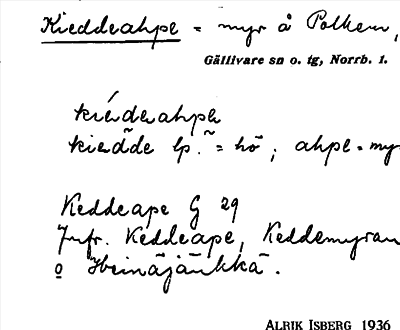 Kieddeahpe = myr å Polkem,
Gällivare sn o. tg, Norrb. l.
kiéddeahpe
kiedde lp. = hö ; ahpe = myr
Keddeape G 29
Jmfr. Keddeape, Keddemyran
o Heinäjänkkä.
ALRIK ISBERG 1936